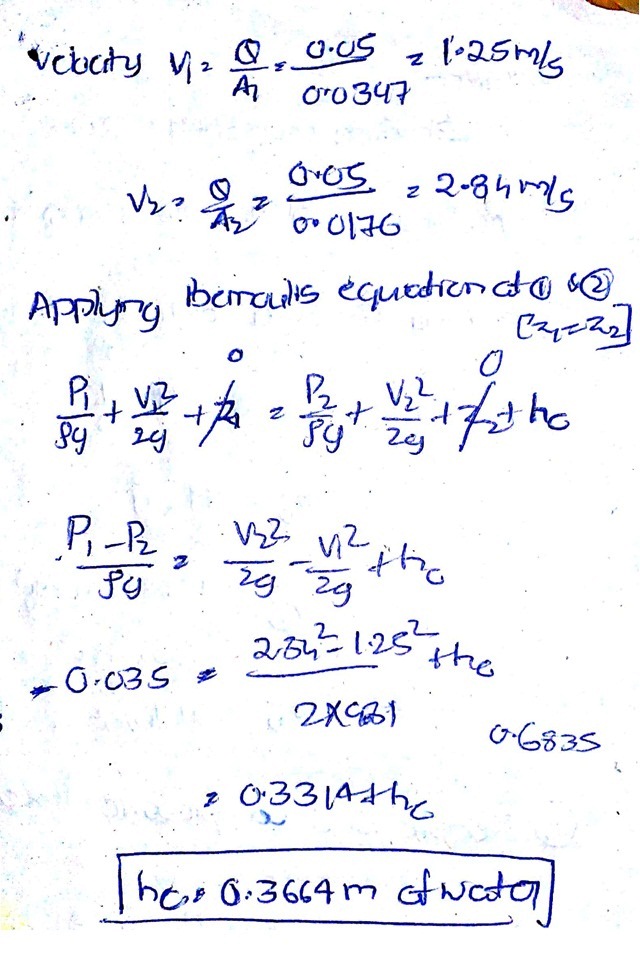 Velocity V1 = Q/A1 = 0.05/0.0347 = 1.25 m/s
V2 = Q/A2 = 0.05/0.0176 = 2.84 m/s
Applying Bernoulis equation at ① & ②
[z1 = z2]
P1/ρg + V1²/2g + z1 = P2/ρg + V2²/2g + z2 + hc
0 0
P1 - P2/ρg = V2²/2g - V1²/2g + hc
-0.035 = 2.84² - 1.25²/2×981 + hc
0.6835
= 0.3314 + hc
hc = 0.3664 m of water